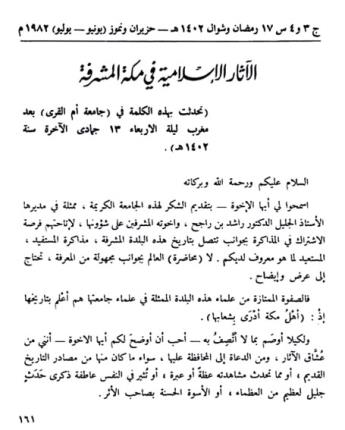 ج ٣ و ٤ س ١٧ رمضان وشوال ١٤٠٢ هـ — حزيران وتموز (يونيو — يوليو) ١٩٨٢ م
الآثار الإسلامية في مكة المشرفة
(تحدثت بهذه الكلمة في (جامعة أم القرى) بعد
مغرب ليلة الاربعاء ١٣ جمادى الآخرة سنة
١٤٠٢ هـ) .
السلام عليكم ورحمة الله وبركاته
اسمحوا لي أيها الإخوة — بتقديم الشكر لهذه الجامعة الكريمة ، ممثلة في مديرها
الأستاذ الجليل الدكتور راشد بن راجح ، واخوته المشرفين على شؤونها ، لإتاحتهم فرصة
الاشتراك في المذاكرة بجوانب تتصل بتاريخ هذه البلدة المشرفة ، مذاكرة المستفيد ،
المستعيد لما هو معروف لديكم . لا (محاضرة) العالم بجوانب مجهولة من المعرفة ، تحتاج
إلى عرض وإيضاح .
فالصفوة الممتازة من علماء هذه البلدة الممثلة في علماء جامعتها هم أعلم بتاريخها
إذ : (أهل مكة أدرى بشعابها) .
ولكيلا أوصم بما لا أتصف به — أحب أن أوضح لكم أيها الاخوة — أنني من
عشاق الآثار ، ومن الدعاة إلى المحافظة عليها ، سواء ما كان منها من مصادر التاريخ
القديم ، أو مما تحدث مشاهدته عظة أو عبرة ، أو تثير في النفس عاطفة ذكرى حدث
جليل لعظيم من العظماء ، أو الأسوة الحسنة بصاحب الأثر .
١٦١